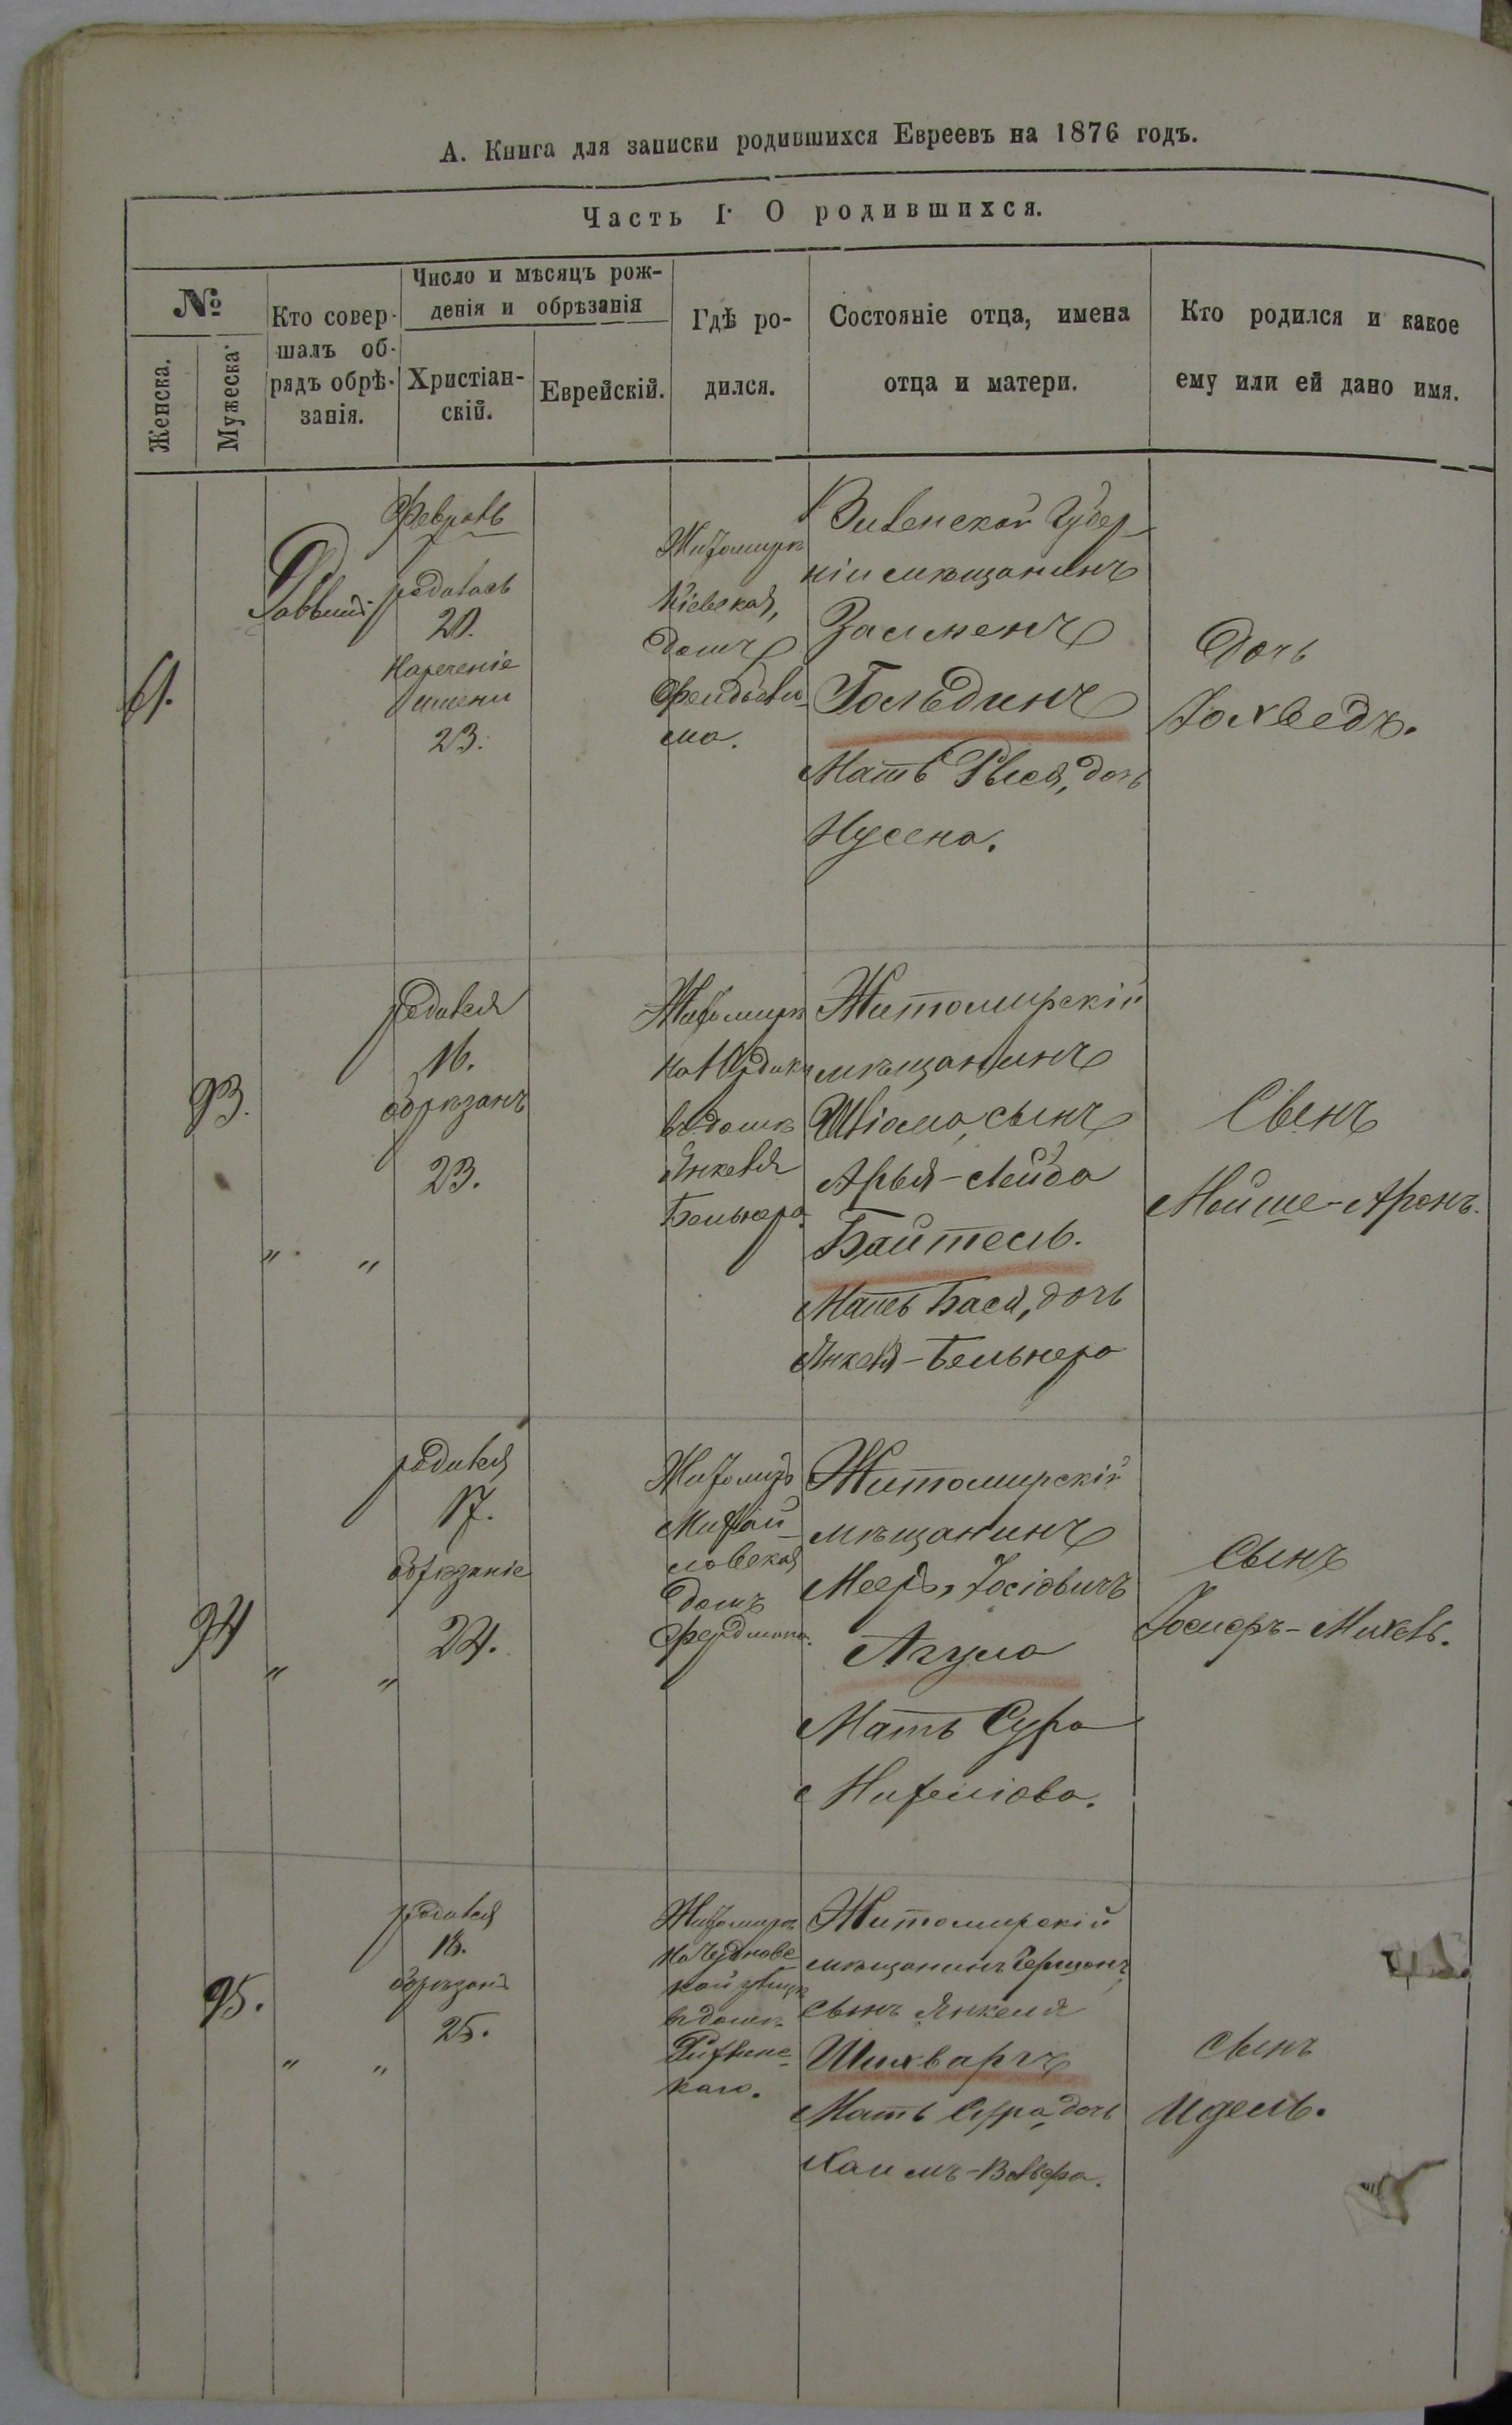 А. Книга для записки родившихся Евреевъ на 1876 годъ.
Часть I. О родившихся.
№
Женска.
Мужеска.
Кто совер-
шалъ об-
рядъ обрѣ-
занія.
Число и мѣсяцъ рож-
денія и обрѣзанія
Христіан-
скій.
Еврейскій.
Гдѣ ро-
дился.
Состояніе отца, имена
отца и матери.
Кто родился и какое
ему или ей дано имя.
61.
Раввинъ
Февраль
родилась
20.
Нареченіе
имени
23.
Житомиръ
Кіевская,
домъ
Виленской Губер-
ніи мѣщанинъ
Залменъ
Гольдинъ
Мать Рыся, дочь
Нусена.
Дочь
Іохведъ.
93.
" "
родился
16.
обрѣзанъ
23.
Житомиръ
въ домѣ
Янкеля
Бельнера.
Житомирскій
мѣщанинъ
Шліома, сынъ
Арья-Лейба
Байтель.
Мать Бася, дочь
Янкеля-Бельнера
Сынъ
Мойше-Аронъ.
94
" "
родился
17.
обрѣзаніе
24.
Житомиръ
Михай-
ловская
домъ
Фердмана.
Житомирскій
мѣщанинъ
Мееръ, Іосіовичъ
Агула
Мать Сура
Сынъ
Михель.
95.
" "
родился
18.
обрѣзанъ
25.
Житомиръ
на Чуднове-
кой улицѣ
въ домѣ
каго.
Житомирскій
мѣщанинъ Гершонъ,
сынъ Янкеля
Шихваргъ
Мать Сура, дочь
Хаимъ-Вольфа.
сынъ
Идель.